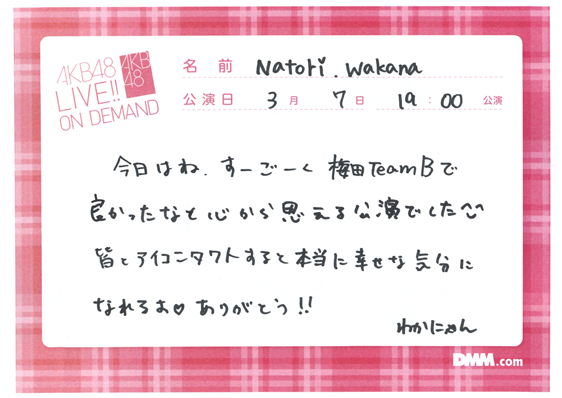 AKB48
LIVE!!
ON DEMAND
AKB
48
名前 Natori.wakana
公演日 3月 7日 19:00 公演
今日はね、すーごーく 梅田TeamBで
良かったなと心から思える公演でした^^
皆とアイコンタクトすると本当に幸せな気分に
なれるよ♡ありがとう!!
わかにゃん
DMM.com